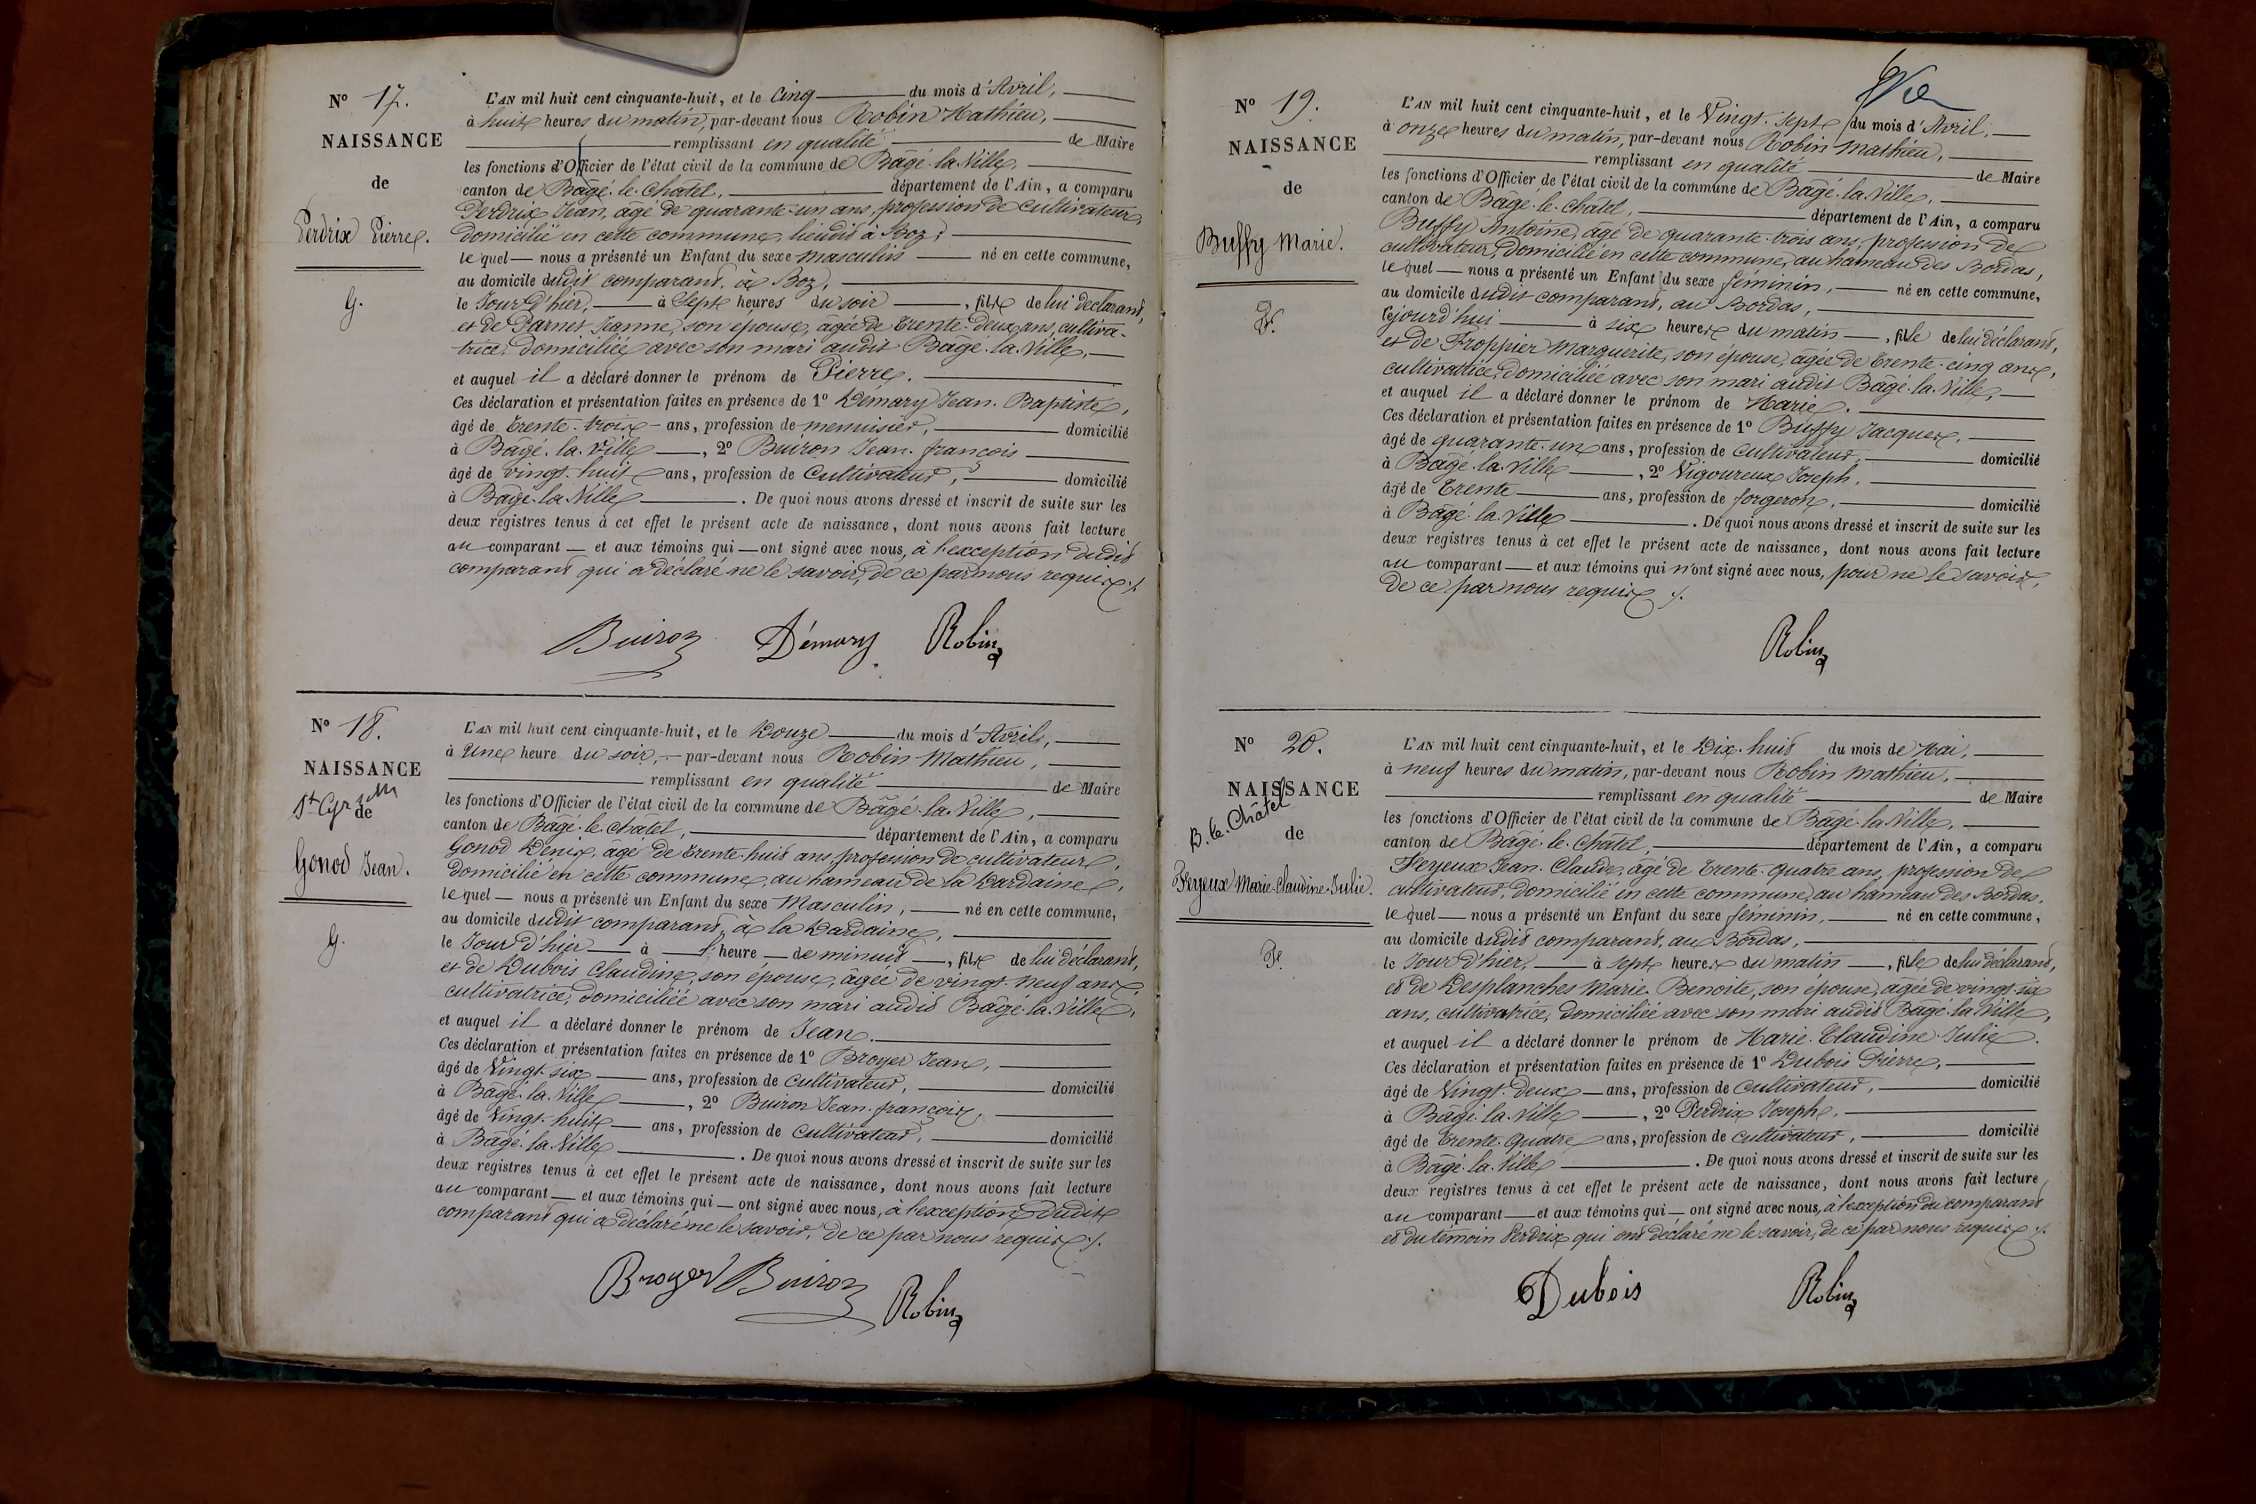 N° 17.
NAISSANCE
de
Perdrix Pierre.
G.
L'AN mil huit cent cinquante-huit, et le Cinq du mois d'Avril,
à huit heures du matin, par-devant nous Robin Mathieu,
remplissant en qualité de Maire
les fonctions d'Officier de l'état civil de la commune de Bâgé-la-Ville,
canton de Bâgé-le-Châtel, département de l'Ain, a comparu
Perdrix Jean, âgé de quarante-un ans, profession de cultivateur,
domicilié en cette commune, lieudit à Boz,
lequel nous a présenté un Enfant du sexe masculin né en cette commune,
au domicile dudit comparant, à Boz,
le Jour d'hier, à Sept heures du soir, fils de lui déclarant,
et de Parnet Jeanne, son épouse, âgée de trente-deux ans, cultiva-
trice, domiciliée avec son mari audit Bâgé-la-Ville,
et auquel il a déclaré donner le prénom de Pierre.
Ces déclaration et présentation faites en présence de 1° Démary Jean-Baptiste,
âgé de trente-trois ans, profession de menuisier, domicilié
à Bâgé-la-Ville, 2° Buiron Jean-françois
âgé de vingt-huit ans, profession de Cultivateur, domicilié
à Bâgé-la-Ville. De quoi nous avons dressé et inscrit de suite sur les
deux registres tenus à cet effet le présent acte de naissance, dont nous avons fait lecture
au comparant et aux témoins qui ont signé avec nous, à l'exception dudit
comparant qui a déclaré ne le savoir, de ce par nous requis ./.
Buiron Démary Robin
N° 18.
NAISSANCE
St Cyr s/M
de
Gonod Jean.
G.
L'AN mil huit cent cinquante-huit, et le Douze du mois d'Avril,
à Une heure du soir, par-devant nous Robin Mathieu,
remplissant en qualité de Maire
les fonctions d'Officier de l'état civil de la commune de Bâgé-la-Ville,
canton de Bâgé-le-Châtel, département de l'Ain, a comparu
Gonod Denis, âgé de trente-huit ans, profession de cultivateur,
domicilié en cette commune, au hameau de la Dardaine,
lequel nous a présenté un Enfant du sexe Masculin, né en cette commune,
au domicile dudit comparant, à la Dardaine,
le Jour d'hier à l'heure de minuit, fils de lui déclarant,
et de Dubois Claudine, son épouse, âgée de vingt-neuf ans,
cultivatrice, domiciliée avec son mari audit Bâgé-la-Ville,
et auquel il a déclaré donner le prénom de Jean.
Ces déclaration et présentation faites en présence de 1° Broyer Jean,
âgé de Vingt-six ans, profession de Cultivateur, domicilié
à Bâgé-la-Ville, 2° Buiron Jean-françois,
âgé de Vingt-huit ans, profession de Cultivateur, domicilié
à Bâgé-la-Ville. De quoi nous avons dressé et inscrit de suite sur les
deux registres tenus à cet effet le présent acte de naissance, dont nous avons fait lecture
au comparant et aux témoins qui ont signé avec nous, à l'exception dudit
comparant qui a déclaré ne le savoir, de ce par nous requis ./.
Broyer Buiron Robin
N° 19.
NAISSANCE
de
Buffy Marie.
F.
L'AN mil huit cent cinquante-huit, et le Vingt-sept du mois d'Avril,
à onze heures du matin, par-devant nous Robin Mathieu,
remplissant en qualité de Maire
les fonctions d'Officier de l'état civil de la commune de Bâgé-la-Ville,
canton de Bâgé-le-Châtel, département de l'Ain, a comparu
Buffy Antoine, âgé de quarante-trois ans, profession de
cultivateur, domicilié en cette commune, au hameau des Bordas,
lequel nous a présenté un Enfant du sexe féminin, né en cette commune,
au domicile dudit comparant, au Bordas,
cejourd'hui à six heures du matin, fille de lui déclarant,
et de Froppier Marguerite, son épouse, âgée de trente-cinq ans,
cultivatrice, domiciliée avec son mari audit Bâgé-la-Ville,
et auquel il a déclaré donner le prénom de Marie.
Ces déclaration et présentation faites en présence de 1° Buffy Jacques,
âgé de quarante-un ans, profession de Cultivateur, domicilié
à Bâgé-la-Ville, 2° Vigoureux Joseph,
âgé de Trente ans, profession de forgeron, domicilié
à Bâgé-la-Ville. De quoi nous avons dressé et inscrit de suite sur les
deux registres tenus à cet effet le présent acte de naissance, dont nous avons fait lecture
au comparant et aux témoins qui n'ont signé avec nous, pour ne le savoir,
de ce par nous requis ./.
Robin
N° 20.
NAISSANCE
B. le-Châtel
de
Feyeux Marie-Claudine-Julie.
F.
L'AN mil huit cent cinquante-huit, et le Dix-huit du mois de Mai,
à neuf heures du matin, par-devant nous Robin Mathieu,
remplissant en qualité de Maire
les fonctions d'Officier de l'état civil de la commune de Bâgé-la-Ville,
canton de Bâgé-le-Châtel, département de l'Ain, a comparu
Feyeux Jean-Claude, âgé de trente-quatre ans, profession de
cultivateur, domicilié en cette commune, au hameau des Bordas,
lequel nous a présenté un Enfant du sexe féminin, né en cette commune,
au domicile dudit comparant, au Bordas,
le Jour d'hier, à sept heures du matin, fille de lui déclarant,
et de Desplanches Marie-Benoite, son épouse, âgée de vingt-six
ans, cultivatrice, domiciliée avec son mari audit Bâgé-la-Ville,
et auquel il a déclaré donner le prénom de Marie-Claudine-Julie.
Ces déclaration et présentation faites en présence de 1° Dubois Pierre,
âgé de Vingt-deux ans, profession de Cultivateur, domicilié
à Bâgé-la-Ville, 2° Perdrix Joseph,
âgé de Trente-Quatre ans, profession de cultivateur, domicilié
à Bâgé-la-Ville. De quoi nous avons dressé et inscrit de suite sur les
deux registres tenus à cet effet le présent acte de naissance, dont nous avons fait lecture
au comparant et aux témoins qui ont signé avec nous, à l'exception du comparant
et du témoin Perdrix qui ont déclaré ne le savoir, de ce par nous requis ./.
Dubois Robin